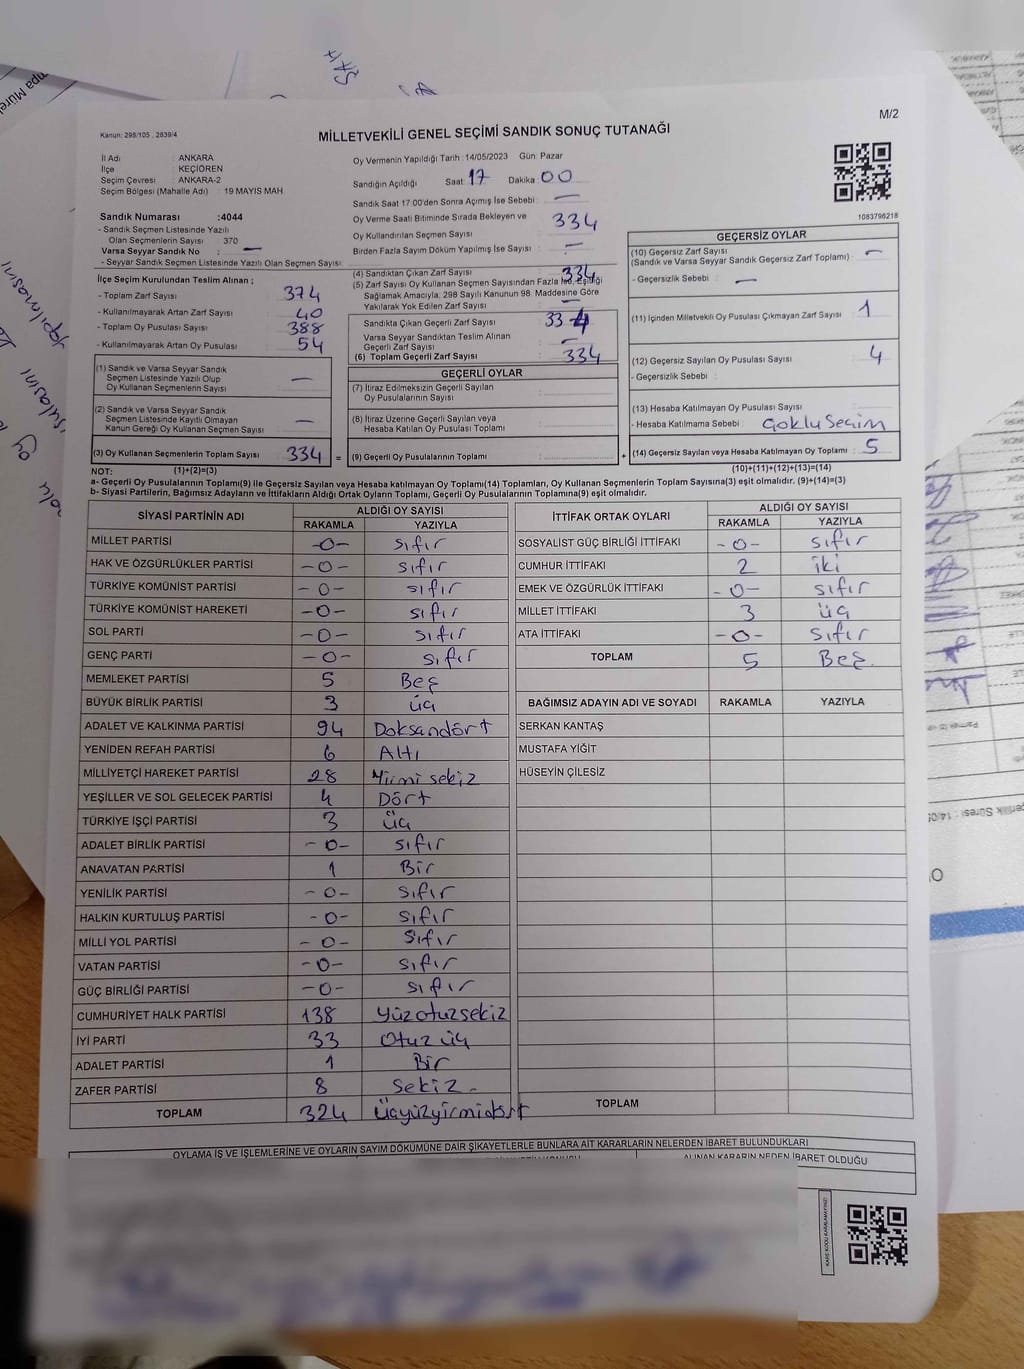 M/2
Kanun: 298/105 , 2839/4
MİLLETVEKİLİ GENEL SEÇİMİ SANDIK SONUÇ TUTANAĞI
İl Adı : ANKARA
İlçe : KEÇİÖREN
Seçim Çevresi : ANKARA-2
Seçim Bölgesi (Mahalle Adı) : 19 MAYIS MAH
Sandık Numarası :4044
- Sandık Seçmen Listesinde Yazılı
Olan Seçmenlerin Sayısı : 370
Varsa Seyyar Sandık No : —
- Seyyar Sandık Seçmen Listesinde Yazılı Olan Seçmen Sayısı:
Oy Vermenin Yapıldığı Tarih : 14/05/2023 Gün: Pazar
Sandığın Açıldığı Saat : 17 Dakika : 00
Sandık Saat 17.00'den Sonra Açılmış İse Sebebi : —
Oy Verme Saati Bitiminde Sırada Bekleyen ve
Oy Kullandırılan Seçmen Sayısı : 334
Birden Fazla Sayım Döküm Yapılmış İse Sayısı : —
1083796218
İlçe Seçim Kurulundan Teslim Alınan ;
- Toplam Zarf Sayısı : 374
- Kullanılmayarak Artan Zarf Sayısı : 40
- Toplam Oy Pusulası Sayısı : 388
- Kullanılmayarak Artan Oy Pusulası : 54
(1) Sandık ve Varsa Seyyar Sandık
Seçmen Listesinde Yazılı Olup
Oy Kullanan Seçmenlerin Sayısı : —
(2) Sandık ve Varsa Seyyar Sandık
Seçmen Listesinde Kayıtlı Olmayan
Kanun Gereği Oy Kullanan Seçmen Sayısı : —
(3) Oy Kullanan Seçmenlerin Toplam Sayısı : 334 =
(4) Sandıktan Çıkan Zarf Sayısı : 334
(5) Zarf Sayısı Oy Kullanan Seçmen Sayısından Fazla İse, Eşitliği
Sağlamak Amacıyla, 298 Sayılı Kanunun 98. Maddesine Göre
Yakılarak Yok Edilen Zarf Sayısı : —
Sandıkta Çıkan Geçerli Zarf Sayısı : 334
Varsa Seyyar Sandıktan Teslim Alınan
Geçerli Zarf Sayısı : —
(6) Toplam Geçerli Zarf Sayısı : 334
GEÇERLİ OYLAR
(7) İtiraz Edilmeksizin Geçerli Sayılan
Oy Pusulalarının Sayısı :
(8) İtiraz Üzerine Geçerli Sayılan veya
Hesaba Katılan Oy Pusulası Toplamı :
(9) Geçerli Oy Pusulalarının Toplamı : +
GEÇERSİZ OYLAR
(10) Geçersiz Zarf Sayısı
(Sandık ve Varsa Seyyar Sandık Geçersiz Zarf Toplamı) : —
- Geçersizlik Sebebi : —
(11) İçinden Milletvekili Oy Pusulası Çıkmayan Zarf Sayısı : 1
(12) Geçersiz Sayılan Oy Pusulası Sayısı : 4
- Geçersizlik Sebebi :
(13) Hesaba Katılmayan Oy Pusulası Sayısı :
- Hesaba Katılmama Sebebi : Çoklu Seçim
(14) Geçersiz Sayılan veya Hesaba Katılmayan Oy Toplamı : 5
NOT: (1)+(2)=(3) (10)+(11)+(12)+(13)=(14)
a- Geçerli Oy Pusulalarının Toplamı(9) ile Geçersiz Sayılan veya Hesaba Katılmayan Oy Toplamı(14) Toplamları, Oy Kullanan Seçmenlerin Toplam Sayısına(3) eşit olmalıdır. (9)+(14)=(3)
b- Siyasi Partilerin, Bağımsız Adayların ve İttifakların Aldığı Ortak Oyların Toplamı, Geçerli Oy Pusulalarının Toplamına(9) eşit olmalıdır.
SİYASİ PARTİNİN ADI ALDIĞI OY SAYISI
RAKAMLA YAZIYLA
MİLLET PARTİSİ -0- sıfır
HAK VE ÖZGÜRLÜKLER PARTİSİ -0- sıfır
TÜRKİYE KOMÜNİST PARTİSİ -0- sıfır
TÜRKİYE KOMÜNİST HAREKETİ -0- sıfır
SOL PARTİ -0- sıfır
GENÇ PARTİ -0- sıfır
MEMLEKET PARTİSİ 5 Beş
BÜYÜK BİRLİK PARTİSİ 3 üç
ADALET VE KALKINMA PARTİSİ 94 Doksandört
YENİDEN REFAH PARTİSİ 6 Altı
MİLLİYETÇİ HAREKET PARTİSİ 28 Yirmi sekiz
YEŞİLLER VE SOL GELECEK PARTİSİ 4 Dört
TÜRKİYE İŞÇİ PARTİSİ 3 üç
ADALET BİRLİK PARTİSİ -0- sıfır
ANAVATAN PARTİSİ 1 Bir
YENİLİK PARTİSİ -0- sıfır
HALKIN KURTULUŞ PARTİSİ -0- sıfır
MİLLİ YOL PARTİSİ -0- sıfır
VATAN PARTİSİ -0- sıfır
GÜÇ BİRLİĞİ PARTİSİ -0- sıfır
CUMHURİYET HALK PARTİSİ 138 Yüzotuzsekiz
İYİ PARTİ 33 Otuz üç
ADALET PARTİSİ 1 Bir
ZAFER PARTİSİ 8 Sekiz
TOPLAM 324 Üçyüzyirmidört
İTTİFAK ORTAK OYLARI ALDIĞI OY SAYISI
RAKAMLA YAZIYLA
SOSYALİST GÜÇ BİRLİĞİ İTTİFAKI -0- sıfır
CUMHUR İTTİFAKI 2 iki
EMEK VE ÖZGÜRLÜK İTTİFAKI -0- sıfır
MİLLET İTTİFAKI 3 üç
ATA İTTİFAKI -0- sıfır
TOPLAM 5 Beş
BAĞIMSIZ ADAYIN ADI VE SOYADI RAKAMLA YAZIYLA
SERKAN KANTAŞ
MUSTAFA YİĞİT
HÜSEYİN ÇİLESİZ
TOPLAM
OYLAMA İŞ VE İŞLEMLERİNE VE OYLARIN SAYIM DÖKÜMÜNE DAİR ŞİKAYETLERLE BUNLARA AİT KARARLARIN NELERDEN İBARET BULUNDUKLARI
ALINAN KARARIN NEDEN İBARET OLDUĞU